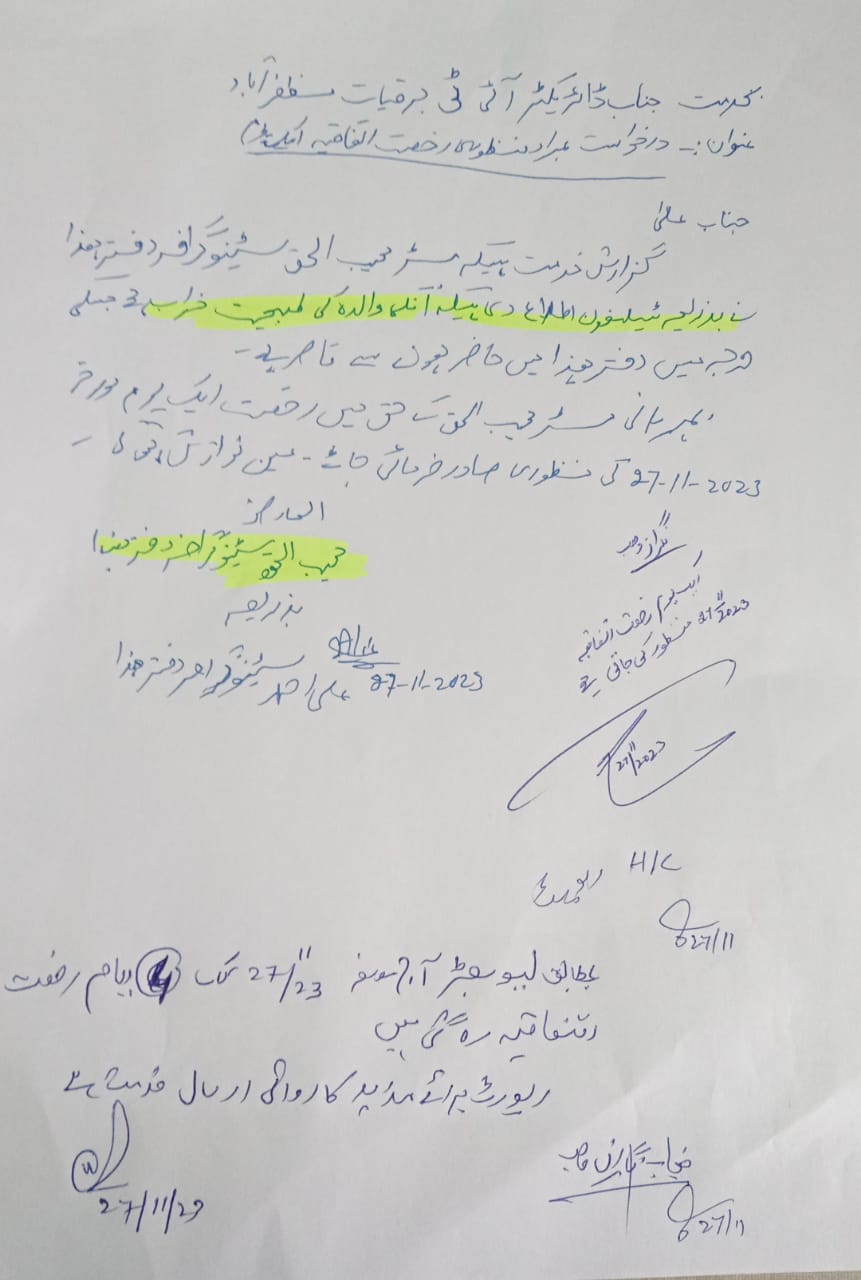 بخدمت جناب ڈائریکٹر آئی ٹی برقیات مظفرآباد
عنوان :- درخواست بمراد منظوری رخصت اتفاقیہ ایک یوم
جناب عالی
گزارش خدمت ہیکہ مسٹر محیب الحق سٹینوگرافر دفتر ہذا
نے بذریعہ ٹیلیفون اطلاع دی ہیکہ انکی والدہ کی طبیعت خراب ہے جسکی
وجہ میں دفتر ہذا میں حاضر ہونے سے قاصر ہے۔
بمہربانی مسٹر محیب الحق کے حق میں رخصت ایک یوم مورخہ
27-11-2023 کی منظوری صادر فرمائی جائے - عین نوازش ہو گی -
العارض
محیب الحق سٹینوگرافر دفتر ہذا
بذریعہ
علی احمد سٹینوگرافر دفتر ہذا 27-11-2023
ایک یوم رخصت اتفاقیہ
27/11/2023 منظور کی جاتی ہے
27/11/2023
H/C
27/11
بمطابق لیو رجسٹر آج مورخہ 27/11/23 تک 4 ایام رخصت
اتفاقیہ رہ گئی ہیں
رپورٹ برائے مزید کاروائی ارسال خدمت ہے
27/11/23
27/11